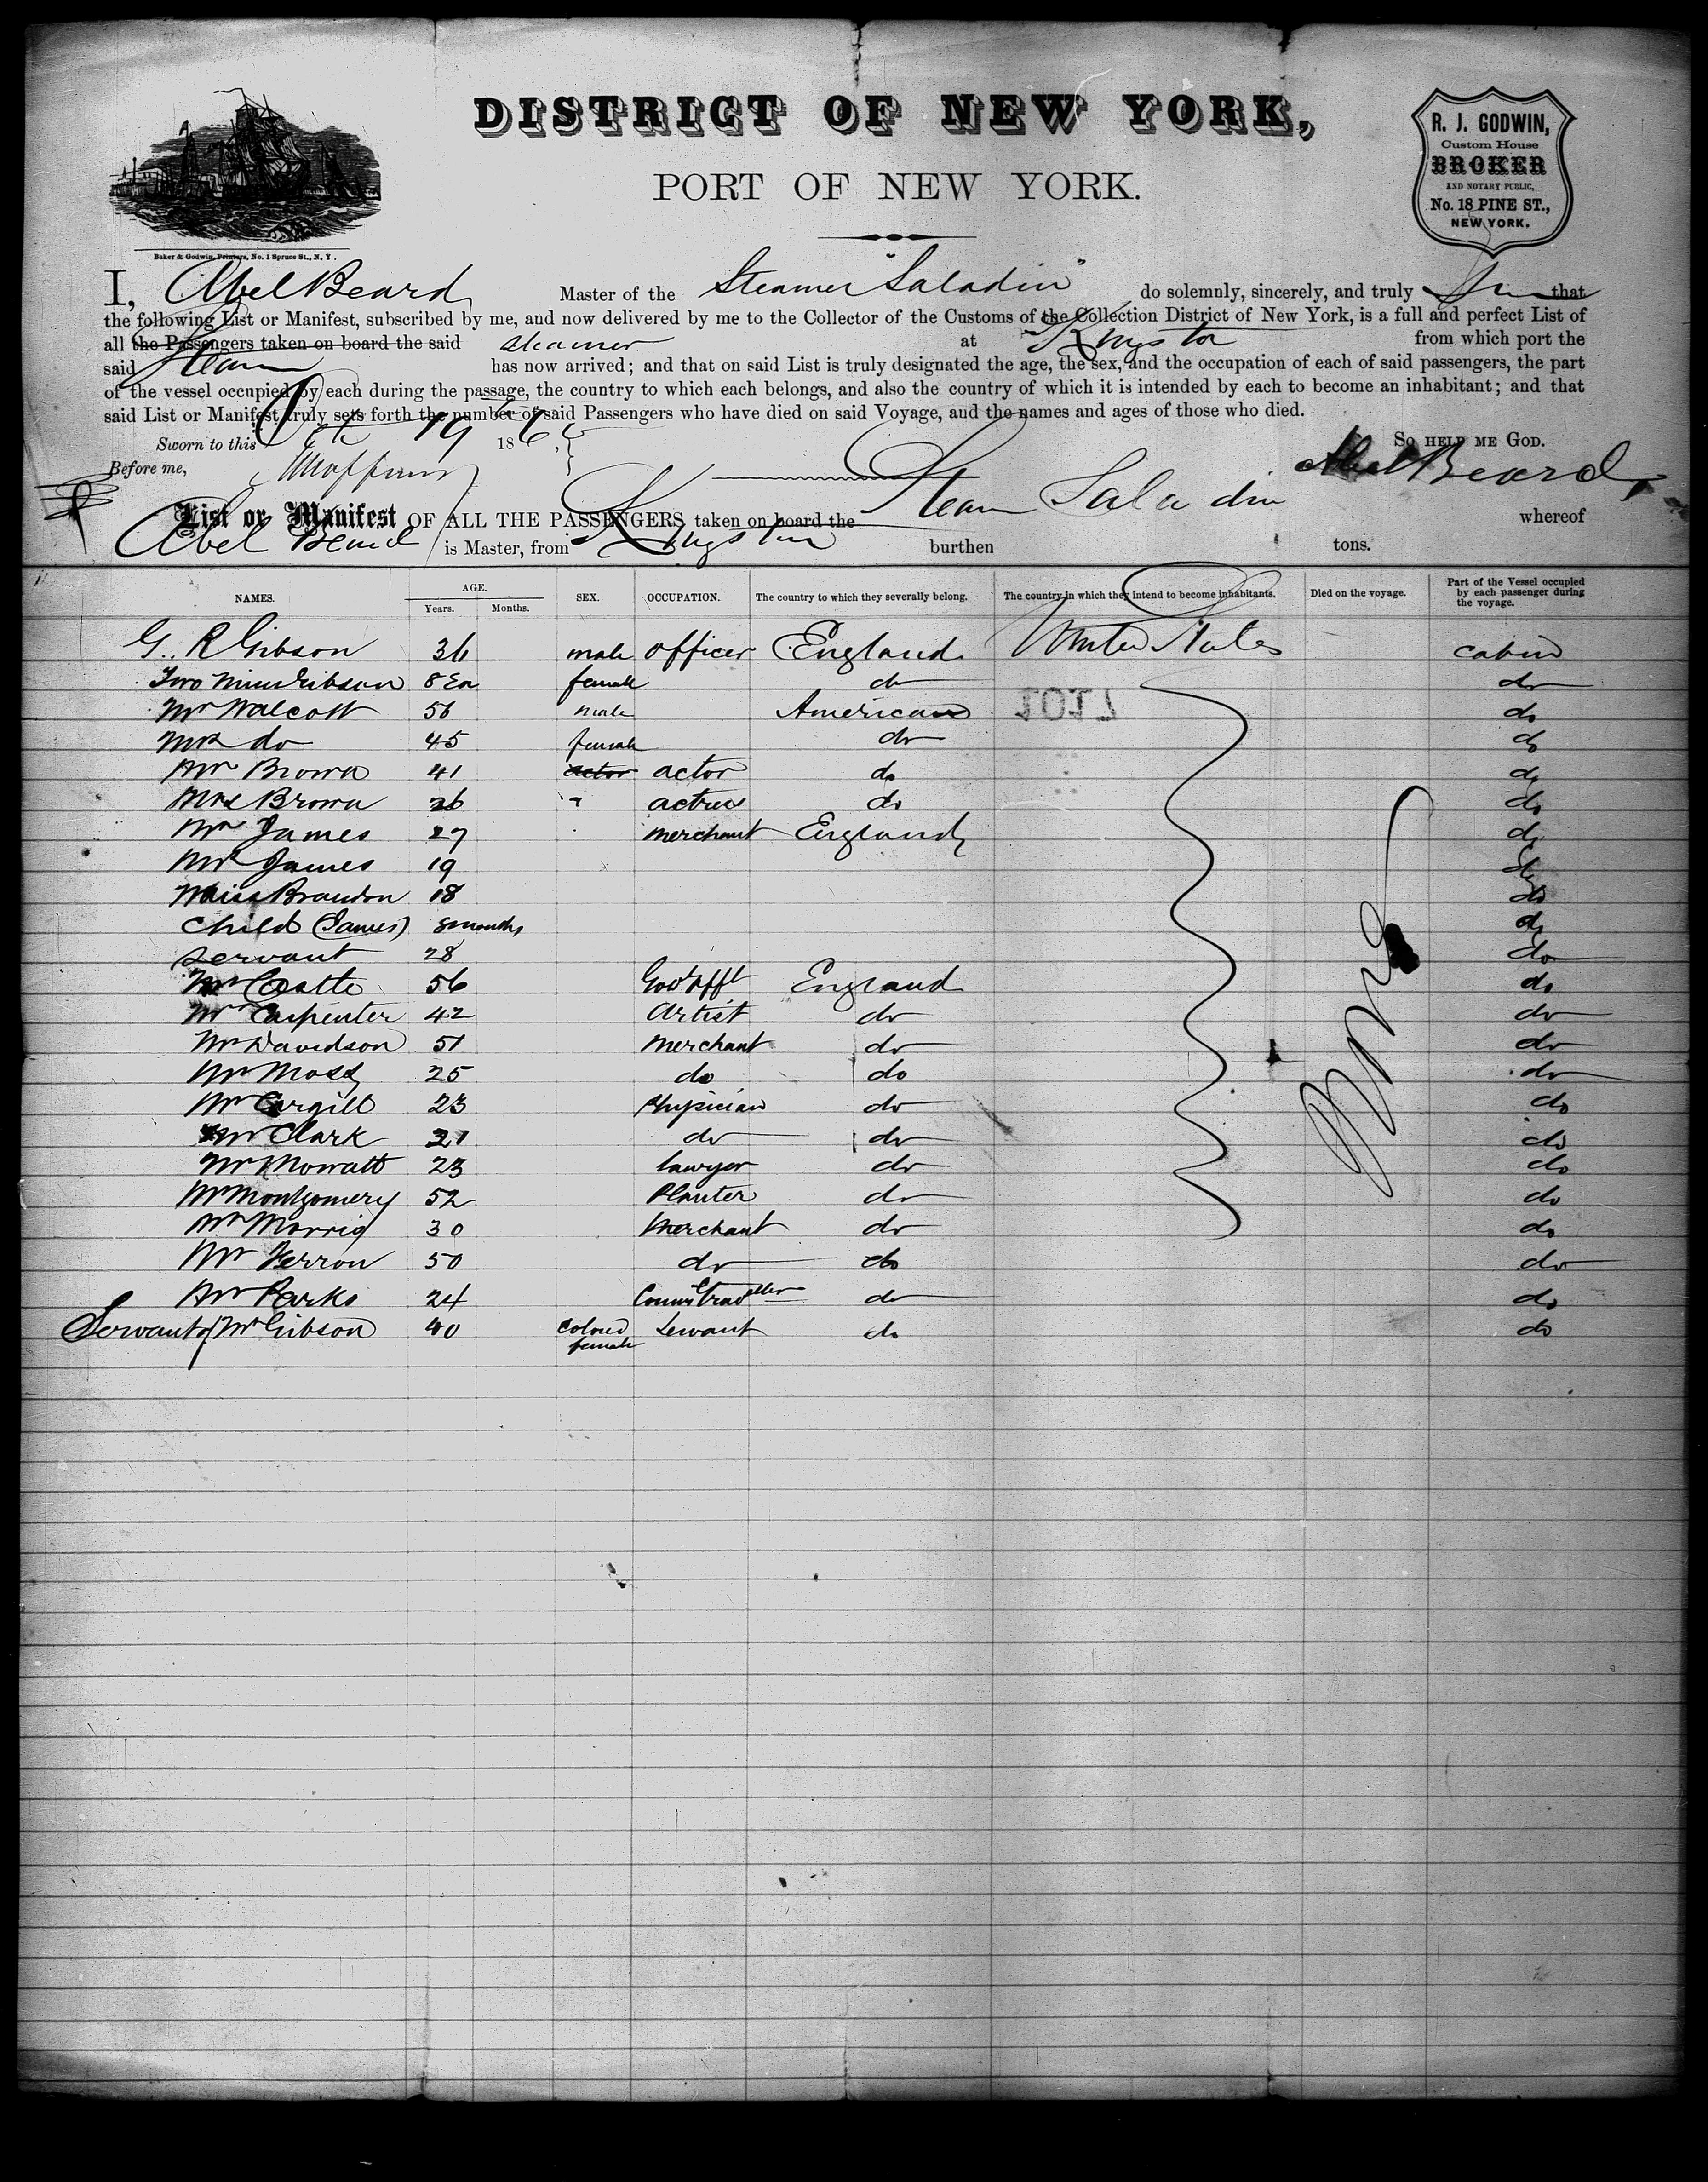 DISTRICT OF NEW YORK,
PORT OF NEW YORK.
R. J. GODWIN,
Custom House
BROKER
AND NOTARY PUBLIC,
No. 18 PINE ST.,
NEW YORK.
Baker & Godwin, Printers, No. 1 Spruce St., N. Y.
I, Abel Beard Master of the Steamer "Saladin" do solemnly, sincerely, and truly that
the following List or Manifest, subscribed by me, and now delivered by me to the Collector of the Customs of the Collection District of New York, is a full and perfect List of
all the Passengers taken on board the said steamer at Kingston from which port the
said Steamer has now arrived; and that on said List is truly designated the age, the sex, and the occupation of each of said passengers, the part
of the vessel occupied by each during the passage, the country to which each belongs, and also the country of which it is intended by each to become an inhabitant; and that
said List or Manifest truly sets forth the number of said Passengers who have died on said Voyage, and the names and ages of those who died.
Sworn to this 19 186 So help me God.
Before me, Abel Beard
List or Manifest OF ALL THE PASSENGERS taken on board the Steam Saladin whereof
Abel Beard is Master, from Kingston burthen tons.
NAMES. AGE. Years. Months. SEX. OCCUPATION. The country to which they severally belong. The country in which they intend to become inhabitants. Died on the voyage. Part of the Vessel occupied by each passenger during the voyage.
G. R Gibson 36 male officer England United States cabin
Two Misses Gibson 8 Ea female do do
Mr Walcott 56 male American do
Mrs do 45 female do do
Mr Brown 41 actor actor do do
Mrs Brown 26 " actress do do
Mr James 27 merchant England do
Mrs James 19 do
Miss Brandon 18 do
Child (James) 8 months do
servant 28 do
Mr Castle 56 England do
Mr Carpenter 42 Artist do do
Mr Davidson 51 Merchant do do
Mr Moss 25 do do do
Mr Cargill 23 Physician do do
Mr Clark 21 do do do
Mr Mowatt 23 Lawyer do do
Mr Montgomery 52 Planter do do
Mr Morris 30 Merchant do do
Mr Ferron 50 do do do
Mr Parks 24 Comm Traveller do do
Servant of Mr Gibson 40 colored female Servant do do
1017